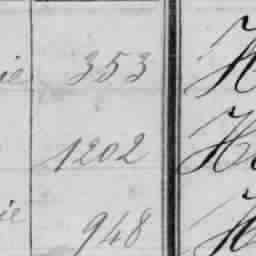 ie 353 H
1202 H
ie 948 H